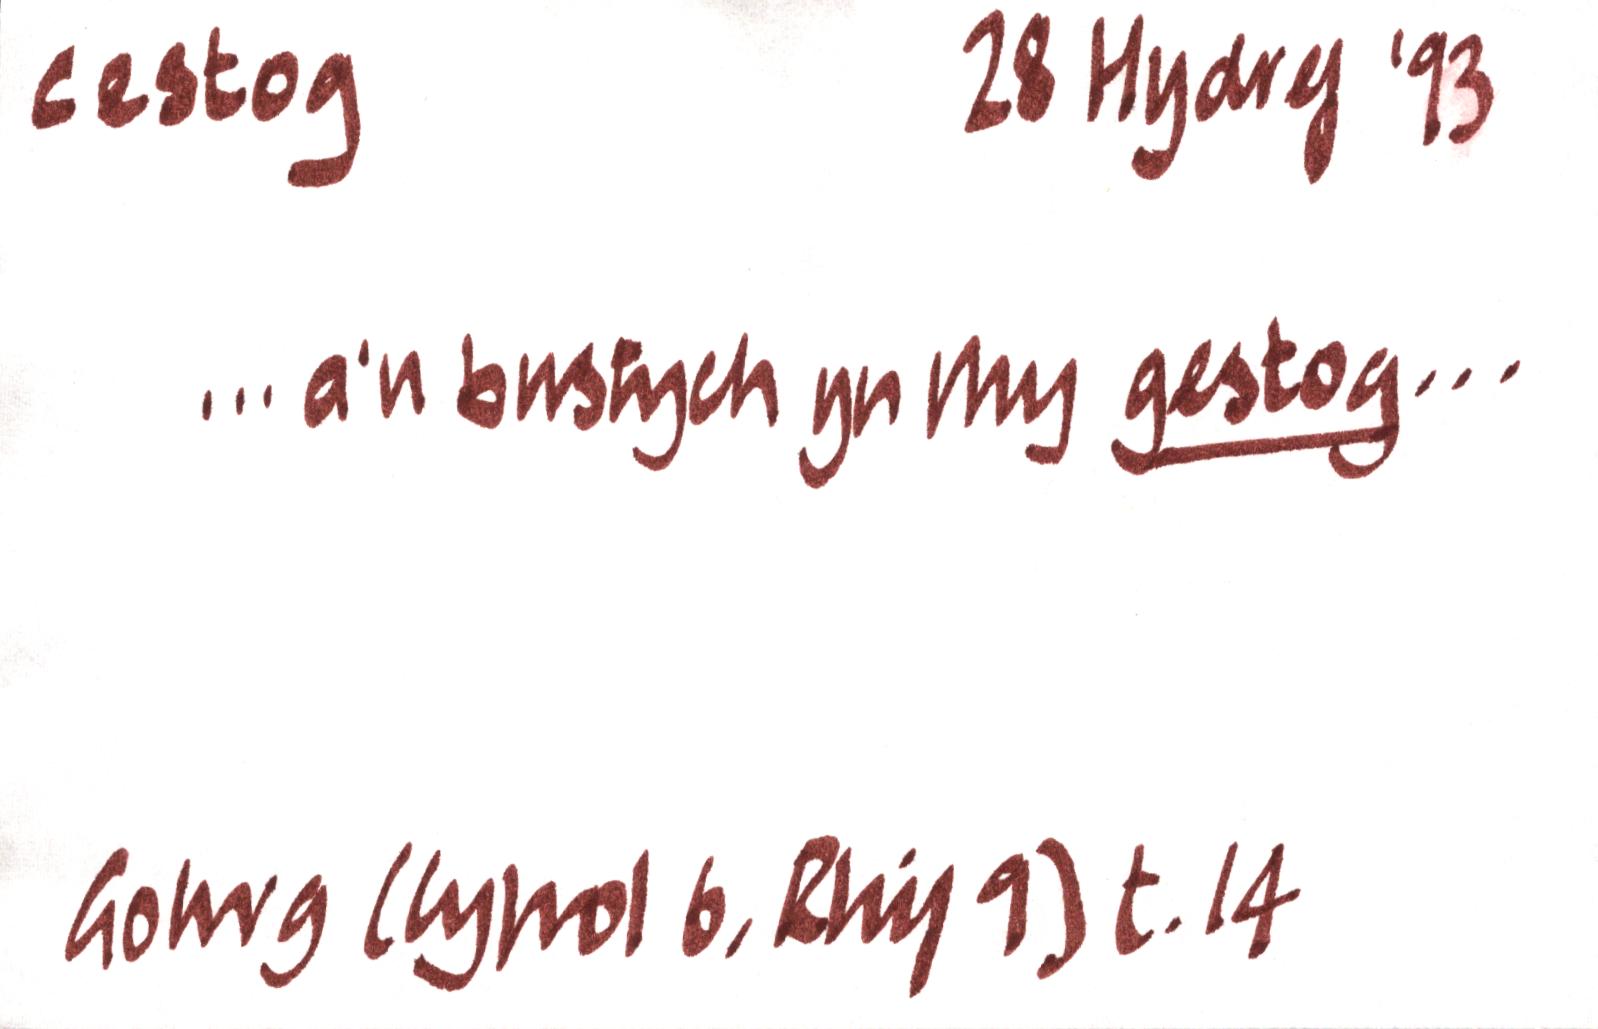 cestog 28 Hydref '93
...a'n bustych yn rhy gestog...
Golwg (Cyfrol 6, Rhif 9) t. 14